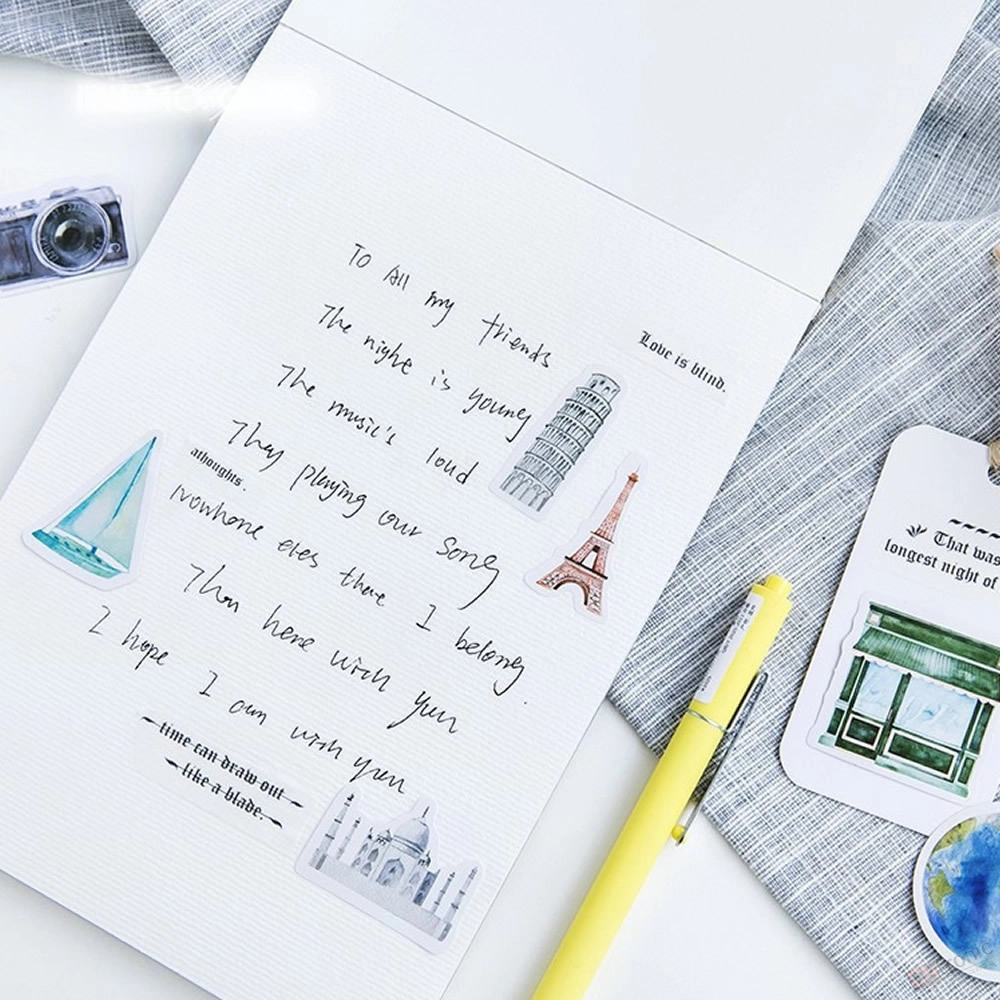 To All my friends
The nighe is young
Love is blind.
The music's loud
They playing our song
athoughts.
Nowhone eles there I belong.
Than here wich yuu
I hope I am wish yuu
time can draw out
like a blade.
That was
longest night of